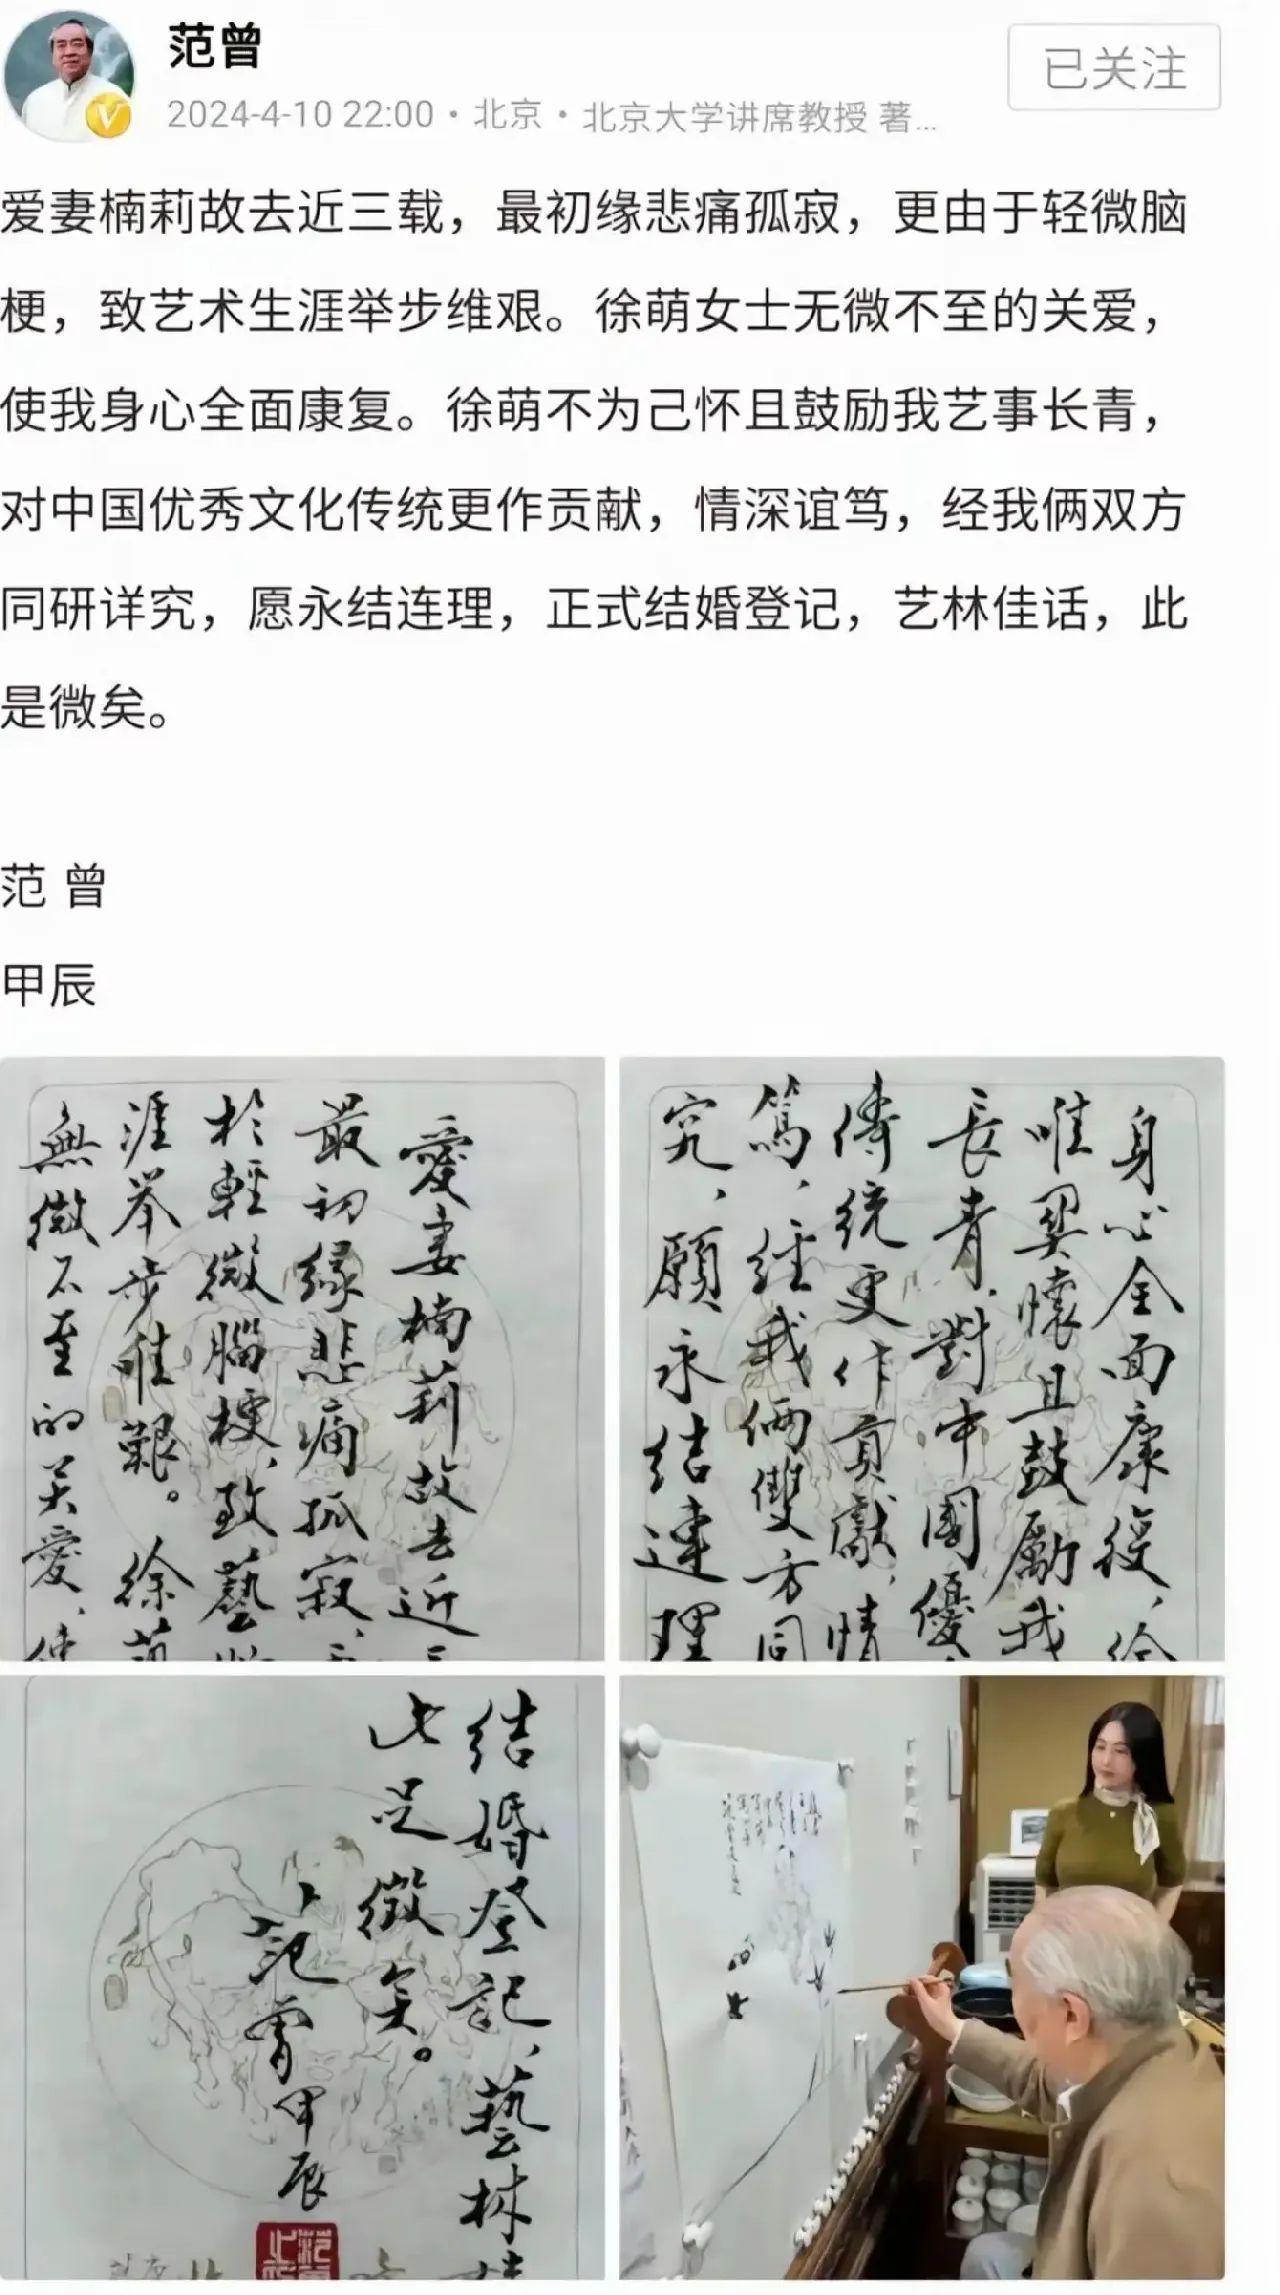 范曾
已关注
2024-4-10 22:00・北京・北京大学讲席教授 著...
爱妻楠莉故去近三载，最初缘悲痛孤寂，更由于轻微脑
梗，致艺术生涯举步维艰。徐萌女士无微不至的关爱，
使我身心全面康复。徐萌不为己怀且鼓励我艺事长青，
对中国优秀文化传统更作贡献，情深谊笃，经我俩双方
同研详究，愿永结连理，正式结婚登记，艺林佳话，此
是微矣。
范 曾
甲辰
愛妻楠莉故去近三
最初缘悲痛孤寂、
於輕微腦梗、致藝
涯举步唯艱。徐萌
無微不至的关愛、使
身心全面康復，徐
唯契懷且鼓勵我
長青，對中國優
傳统更作貢獻、情
篤，經我俩雙方同
究，願永结連理
结婚登記、藝林佳
此足徵矣。
范曾甲辰